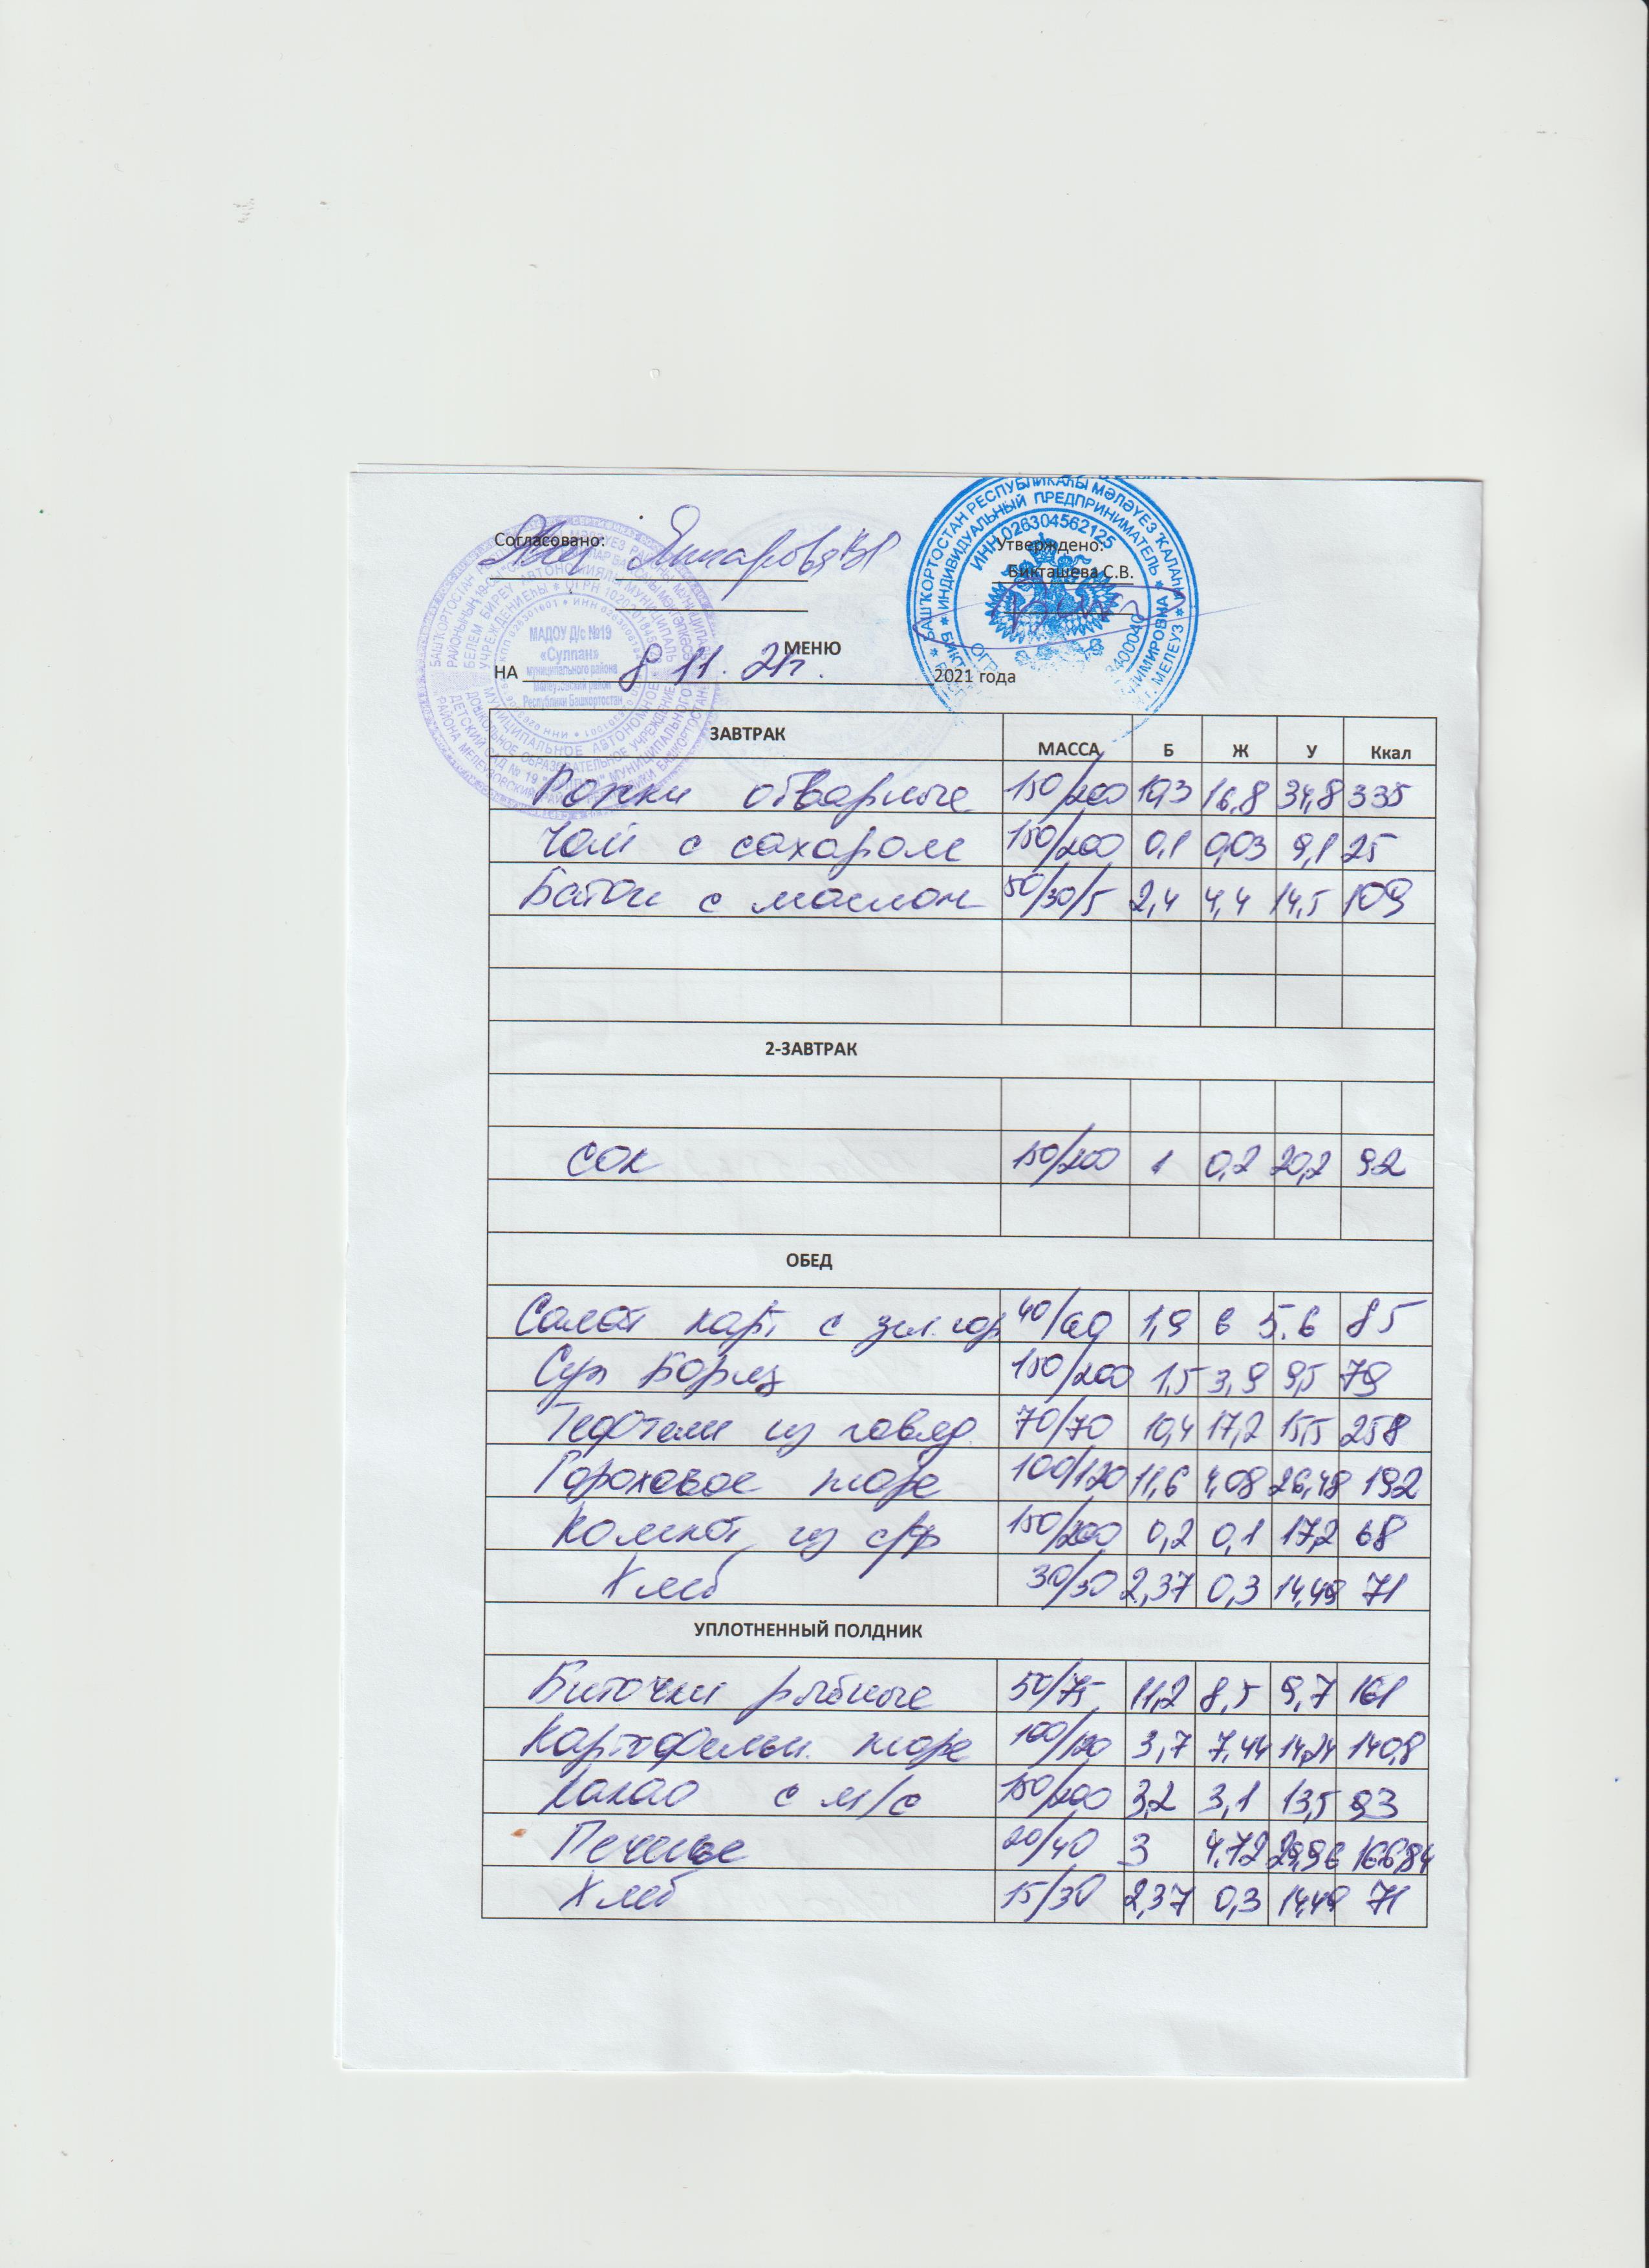 Согласовано:
Утверждено:
Бикташева С.В.
МЕНЮ
НА 8. 11. 21г. 2021 года
ЗАВТРАК МАССА Б Ж У Ккал
Рожки отварные 150/200 10,3 16,8 34,8 335
Чай с сахаром 150/200 0,1 0,03 9,1 25
Батон с маслом 50/30/5 2,4 4,4 14,5 109
2-ЗАВТРАК
сок 150/200 1 0,2 20,2 92
ОБЕД
Салат карт. с зел. гор 40/60 1,9 6 5.6 85
Суп Борщ 150/200 1,5 3,9 9,5 79
Тефтели из говяд. 70/70 10,4 17,2 15,5 258
Гороховое пюре 100/120 11,6 4,08 26,48 192
Компот из с/ф 150/200 0,2 0,1 17,2 68
Хлеб 30/30 2,37 0,3 14,49 71
УПЛОТНЕННЫЙ ПОЛДНИК
Биточки рыбные 50/75 11,2 8,5 9,7 161
Картофельн. пюре 100/120 3,7 7,44 14,24 140,8
Какао с м/с 150/200 3,2 3,1 13,5 93
Печенье 20/40 3 4,72 29,96 166,84
Хлеб 15/30 2,37 0,3 14,49 71
МАДОУ Д/с №19
«Сулпан»
муниципального района
Мелеузовский район
Республики Башкортостан
БАШҠОРТОСТАН РЕСПУБЛИКАҺЫ МӘЛӘҮЕЗ ҠАЛАҺЫ
ИНДИВИДУАЛЬНЫЙ ПРЕДПРИНИМАТЕЛЬ
ИНН 026304562125
г. МЕЛЕУЗ